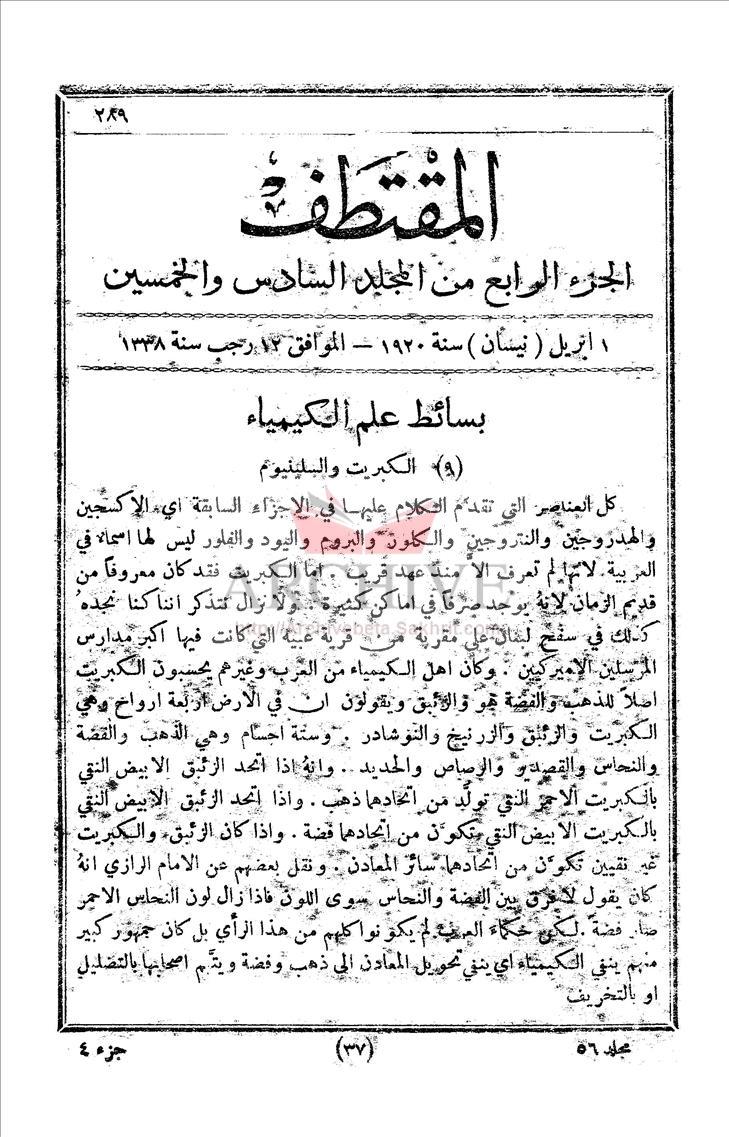 ٢٨٩
المقتطف
الجزء الرابع من المجلد السادس والخمسين
١ ابريل ( نيسان ) سنة ١٩٢٠ — الموافق ١٢ رجب سنة ١٣٣٨
بسائط علم الكيمياء
(٩) الكبريت والسلينيوم
كل العناصر التي تقدَّم الكلام عليها في الاجزاء السابقة اي الاكسجين
والهدروجين والنتروجين والكلور والبروم واليود والفلور ليس لها اسماء في
العربية لانها لم تعرف الاَّ منذ عهد قريب . اما الكبريت فقد كان معروفاً من
قديم الزمان لانهُ يوجد صرفاً في اماكن كثيرة . ولا نزال نتذكر اننا كنا نجدهُ
كذلك في سفح لبنان على مقربة من قرية عبيه التي كانت فيها اكبر مدارس
المرسلين الاميركيين . وكان اهل الكيمياء من العرب وغيرهم يحسبون الكبريت
اصلاً للذهب والفضة هو والزئبق ويقولون ان في الارض اربعة ارواح وهي
الكبريت والزئبق والزرنيخ والنوشادر . وستة اجسام وهي الذهب والفضة
والنحاس والقصدير والرصاص والحديد . وانهُ اذا اتحد الزئبق الابيض النقي
بالكبريت الاحمر النقي تولَّد من اتحادهما ذهب . واذا اتحد الزئبق الابيض النقي
بالكبريت الابيض النقي تكوَّن من اتحادهما فضة . واذا كان الزئبق والكبريت
غير نقيين تكوَّن من اتحادهما سائر المعادن . ونقل بعضهم عن الامام الرازي انهُ
كان يقول لا فرق بين الفضة والنحاس سوى اللون فاذا زال لون النحاس الاحمر
صار فضة . لكن حكماء العرب لم يكونوا كلهم من هذا الرأي بل كان جمهور كبير
منهم ينفي الكيمياء اي ينفي تحويل المعادن الى ذهب وفضة ويتهم اصحابها بالتضليل
او بالتخريف
مجلد ٥٦ (٣٧) جزء ٤
ARCHIVE
http://Archivebeta.Sakhrit.com